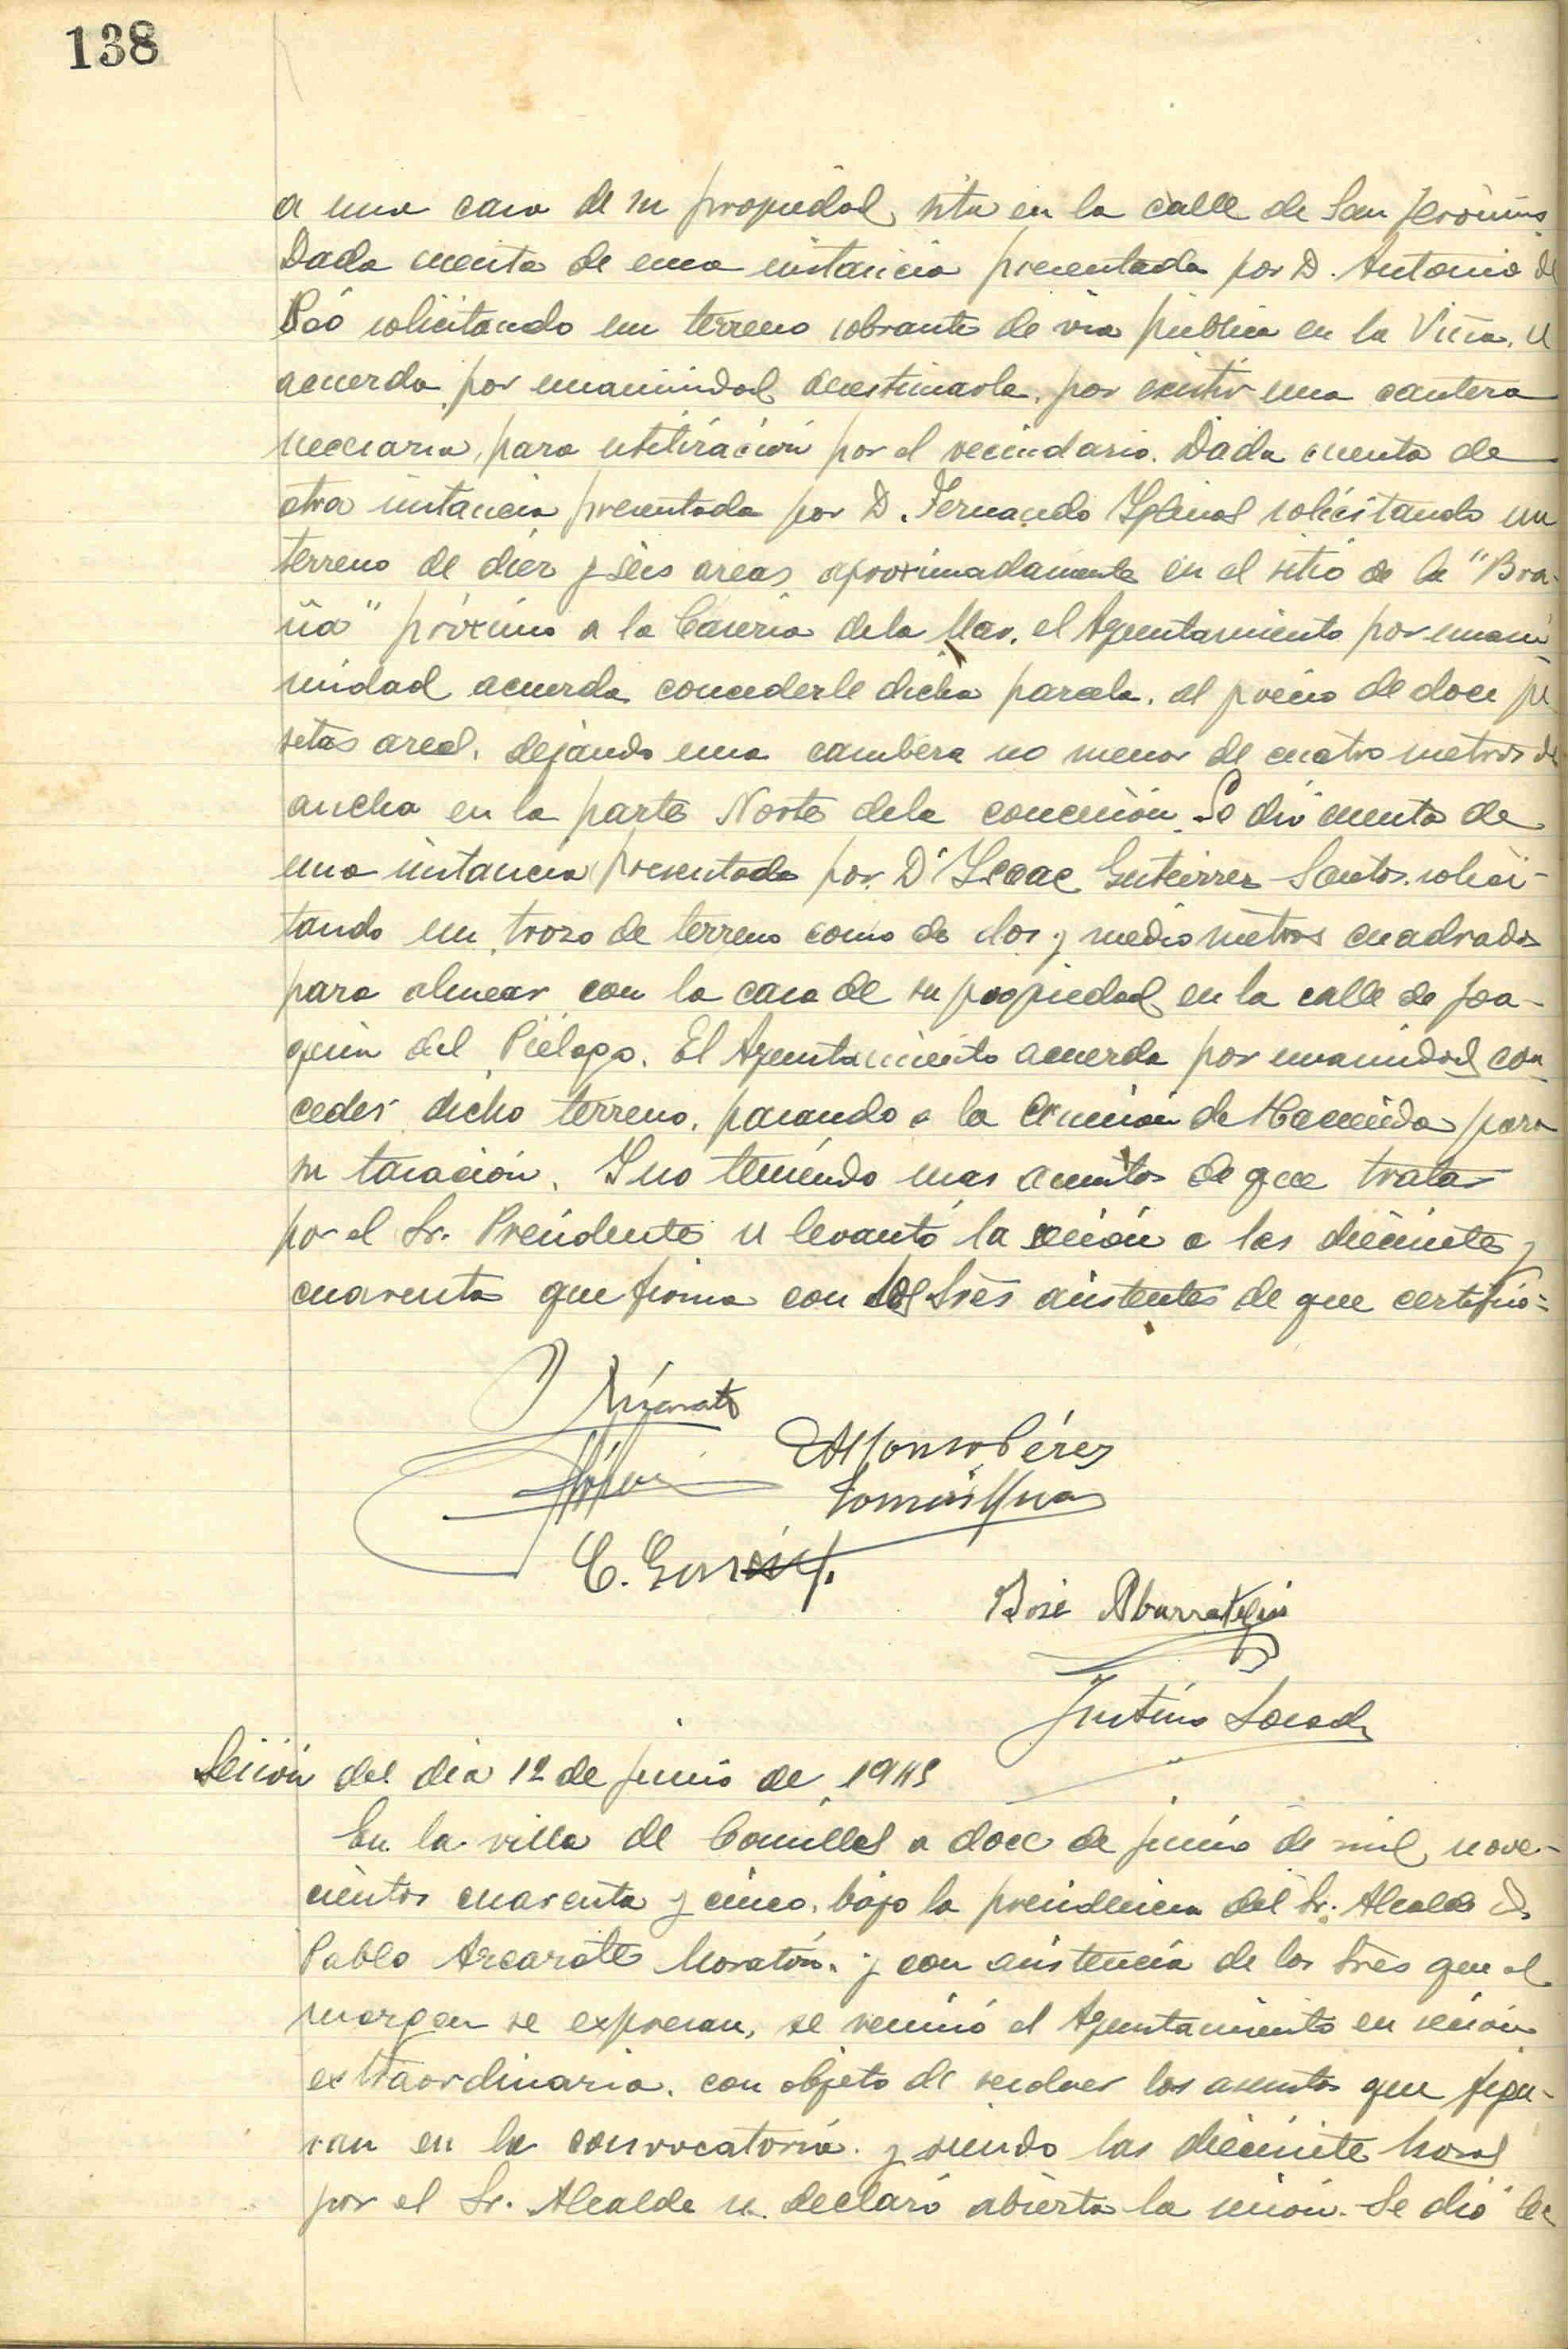 138
a una casa de su propiedad, sita en la calle de San Jerónimo
Dada cuenta de una instancia presentada por D. Antonio de
Póo solicitando un terreno sobrante de via pública en la Viña, se
acuerda por unanimidad desestimarla, por existir una cantera
necesaria, para utilización por el vecindario. Dada cuenta de
otra instancia presentada por D. Fernando Iglesias solicitando un
terreno de diez y seis areas aproximadamente en el sitio de la "Bra-
ña" próximo a la Caseria de la Mar, el Ayuntamiento por unani-
midad acuerda concederle dicha parcela, al precio de doce pe
setas area, dejando una cambera no menor de cuatro metros de
ancha en la parte Norte de la concesión. Se dió cuenta de
una instancia presentada por D. Isaac Gutierrez Santos solici-
tando un trozo de terreno como de dos y medio metros cuadrados
para alinear con la casa de su propiedad en la calle de Joa-
quin del Piélago. El Ayuntamiento acuerda por unanimidad con
ceder dicho terreno, pasando a la Comisión de Hacienda para
su tasación. Y no teniendo mas asuntos de que tratar
por el Sr. Presidente se levantó la sesión a las diecisiete y
cuarenta que firma con los Sres asistentes de que certifico=
Azcarate
Alfonso Pérez
Tomás
C. García
José
Justino
Sesión del dia 12 de junio de 1945
En la villa de Comillas a doce de junio de mil nove-
cientos cuarenta y cinco, bajo la presidencia del Sr. Alcalde D.
Pablo Azcarate Moratón, y con asistencia de los Sres que al
margen se expresan, se reunió el Ayuntamiento en sesión
extraordinaria, con objeto de resolver los asuntos que figu-
ran en la convocatoria, y siendo las diecisiete horas
por el Sr. Alcalde se declaró abierta la sesión. Se dió lec